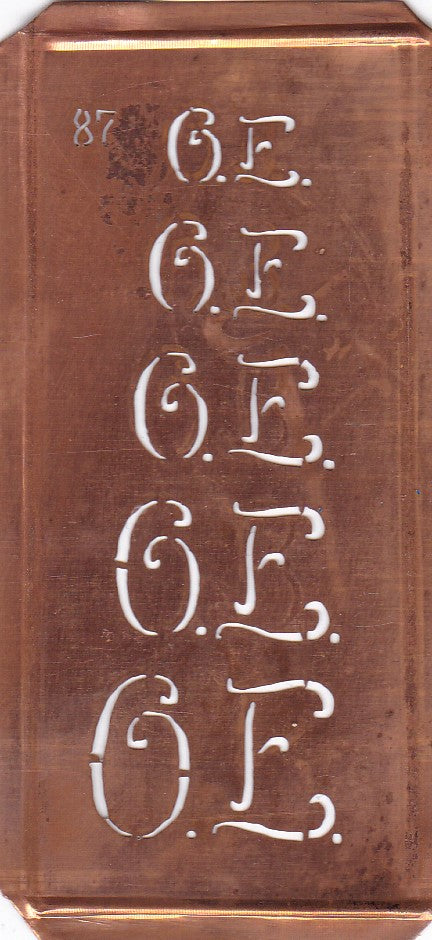 87 G.E.
G.E.
G.E.
G.E.
G.E.